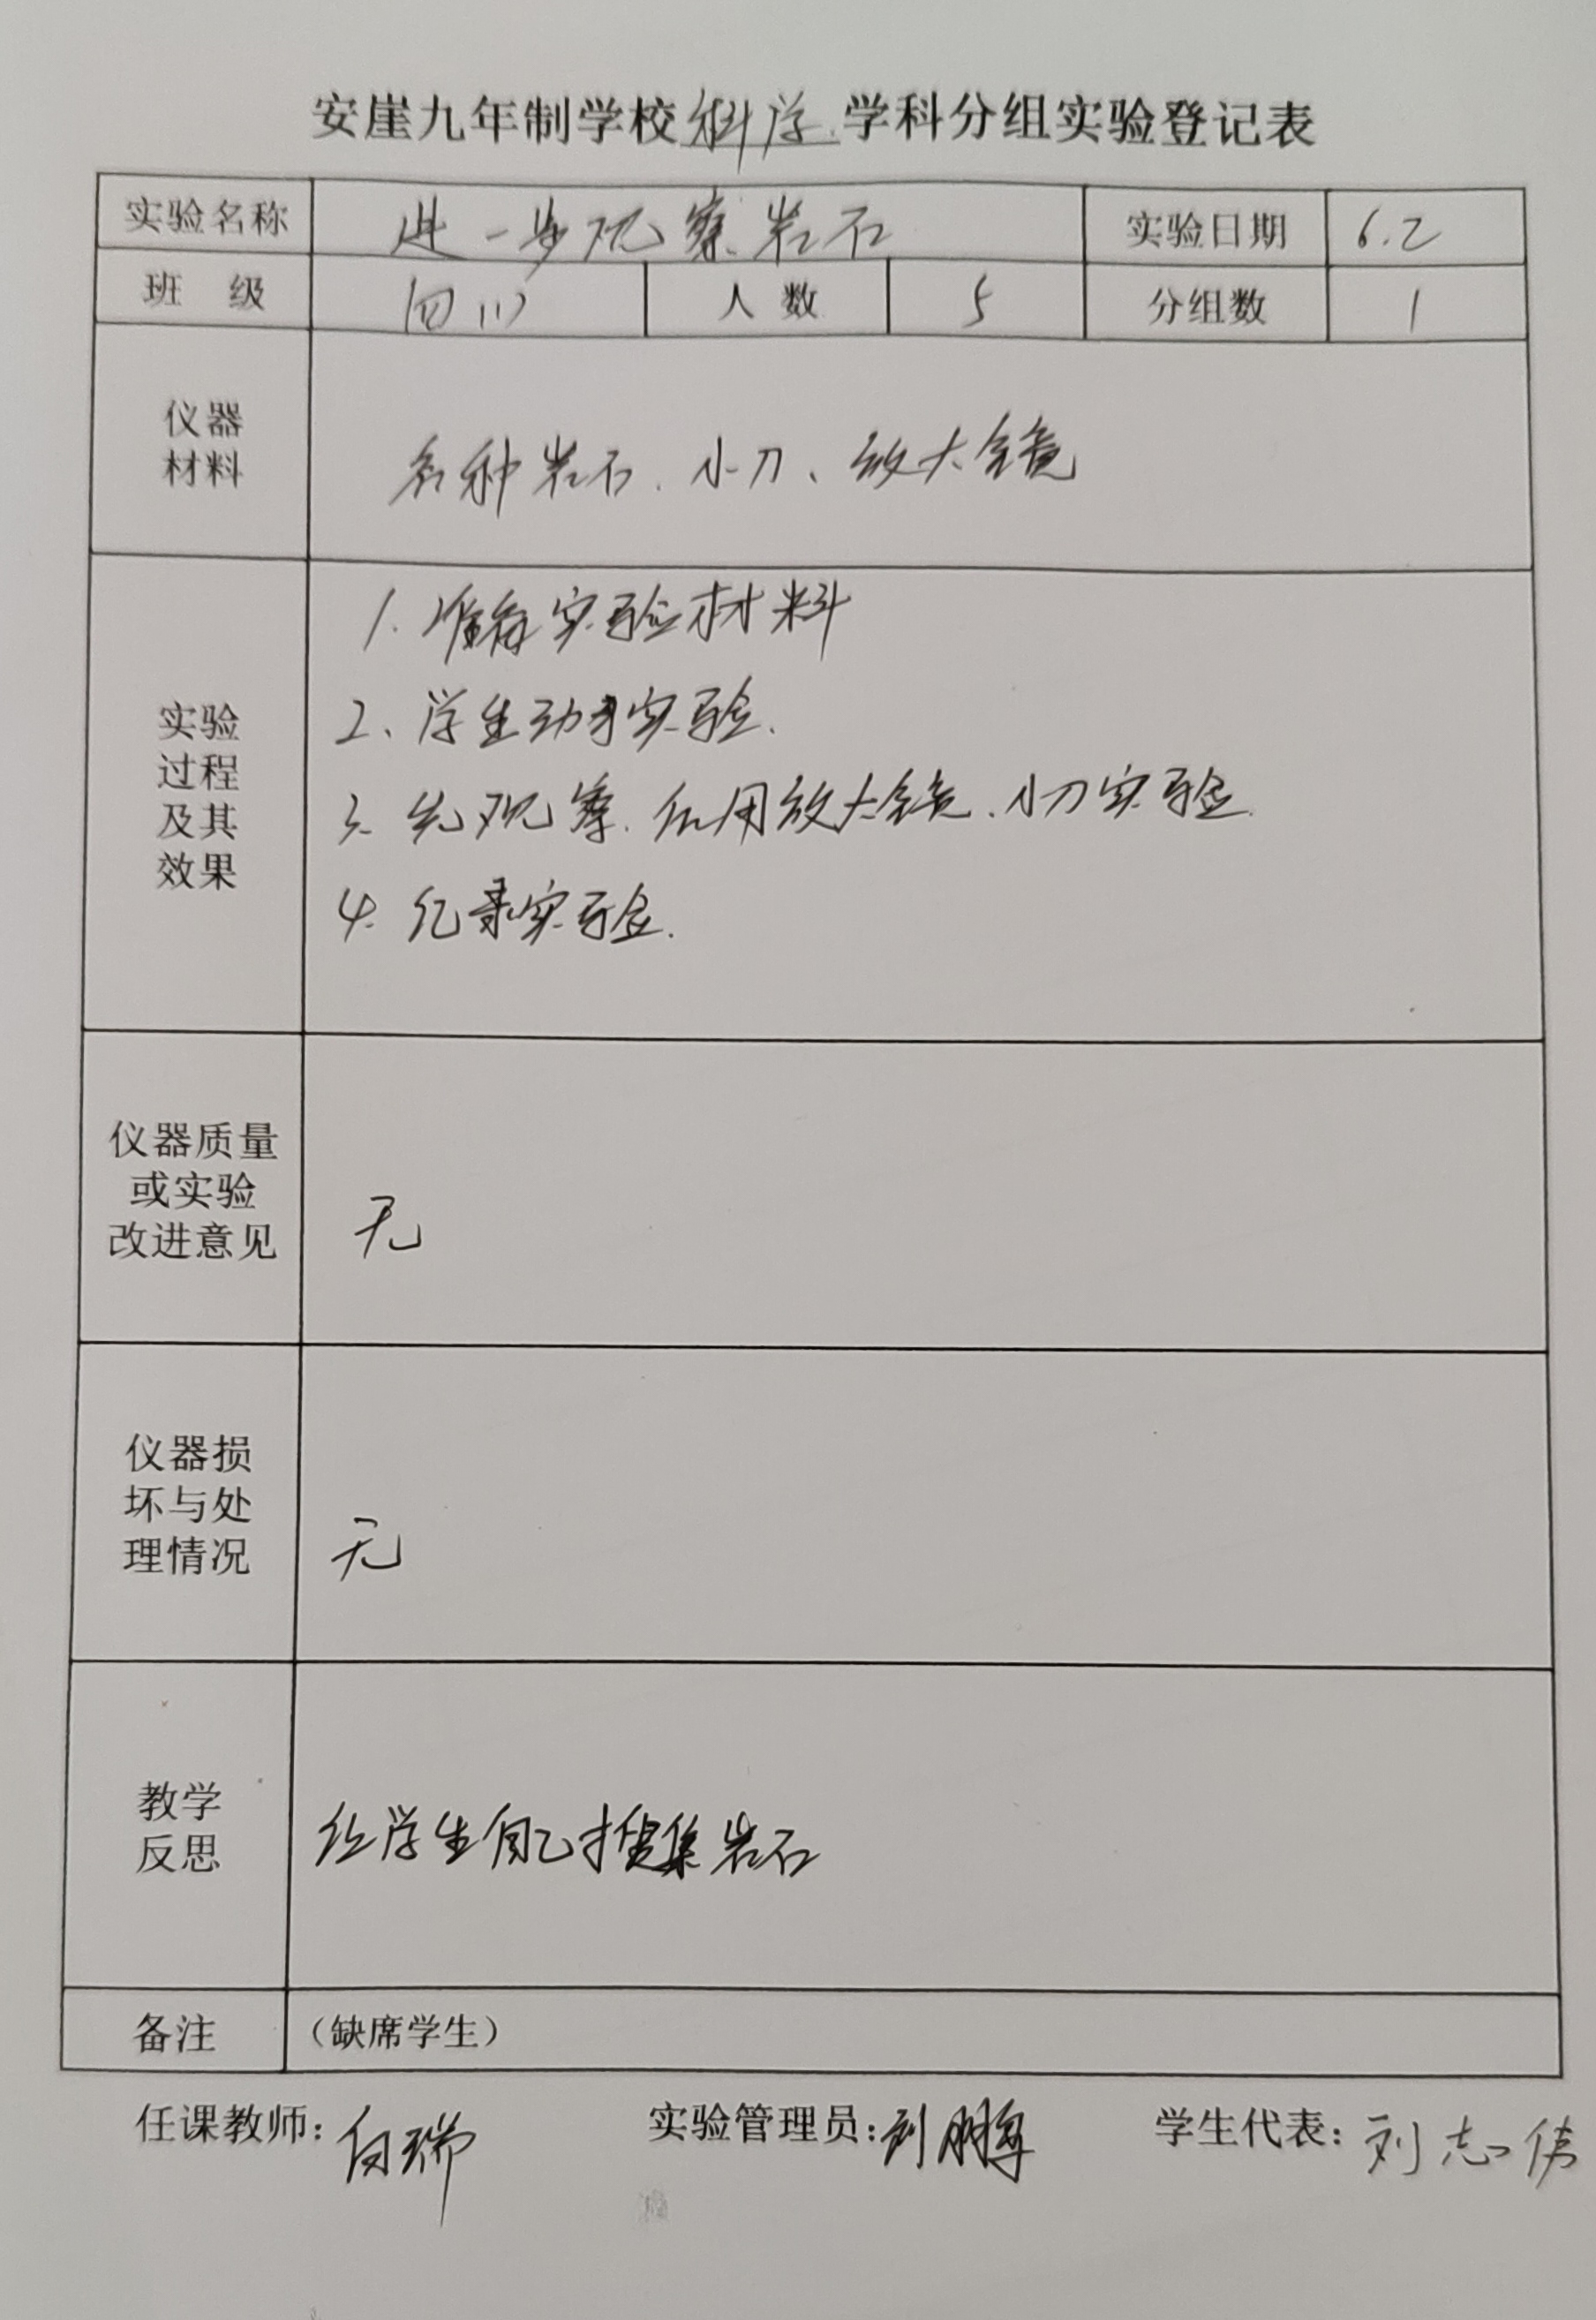 安崖九年制学校科学学科分组实验登记表
实验名称 进一步观察岩石 实验日期 6.2
班 级 四(1) 人数 5 分组数 1
仪器
材料
各种岩石、小刀、放大镜
实验
过程
及其
效果
1.准备实验材料
2、学生动手实验.
3.先观察.后用放大镜、小刀实验.
4.纪录实验.
仪器质量
或实验
改进意见
无
仪器损
坏与处
理情况
无
教学
反思
学生自己搜集岩石
备注 (缺席学生)
任课教师:白瑞 实验管理员:刘鹏军 学生代表:刘志伟